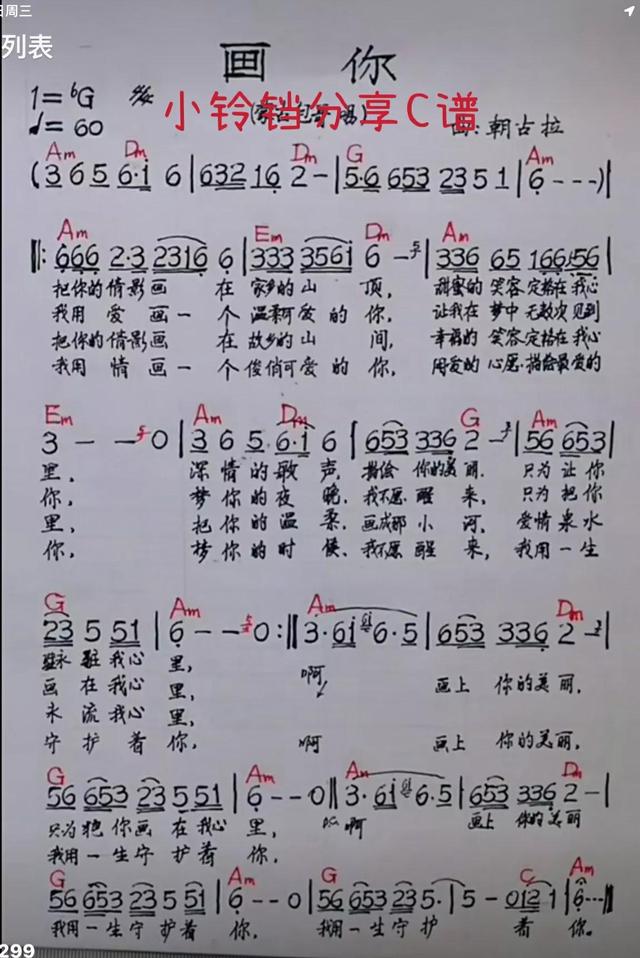 周三
列表
画 你
1=♭G 4/4
♩=60
小铃铛分享C谱
曲:朝古拉
Am Dm Dm G Am
(3 6 5 6·i 6 | 632 16 2 - | 5·6 653 23 5 1 | 6 - - -)
Am Em Dm Am
‖: 666 2·3 2316 6 | 333 356i 6 - | 336 65 166 56 |
把你的倩影画 在 家乡的山 顶, 甜蜜的 笑容定格在我心
我用 爱 画一 个 温柔可爱的你, 让我在 梦中无数次见到
把你的倩影画 在 故乡的山 间, 幸福的 笑容定格在我心
我用 情画一 个俊俏可爱的你, 用爱的心愿 描绘最爱的
Em Am Dm G Am
3 - - 0 | 3 6 5 6·i 6 | 653 336 2 - | 56 653 |
里, 深情的歌声, 描绘 你的美丽. 只为 让你
你, 梦你的夜晚, 我不愿 醒 来, 只为 把你
里, 把你的温柔, 画成那 小 河, 爱情 泉水
你, 梦你的时候, 我不愿醒 来, 我用一生
G Am Am Dm
23 5 51 | 6 - - 0 :‖ 3·6i 6·5 | 653 336 2 - |
驻 我心 里, 啊, 画上 你的美丽,
画 在我心 里,
永 流我心 里,
守 护 着 你, 啊 画上 你的美丽,
G Am Am Dm
56 653 23 5 51 | 6 - - 0 ‖ 3·6i 6·5 | 653 336 2 - |
只为把你画 在我心 里, 啊 画上 你的美丽
我用一生守 护着 你,
G Am G C Am
56 653 23 5 51 | 6 - - 0 | 56 653 23 5· | 5 - 012 1 | 6 - - - ‖
我用一生守 护着 你, 我用一生守 护 着 你.
299